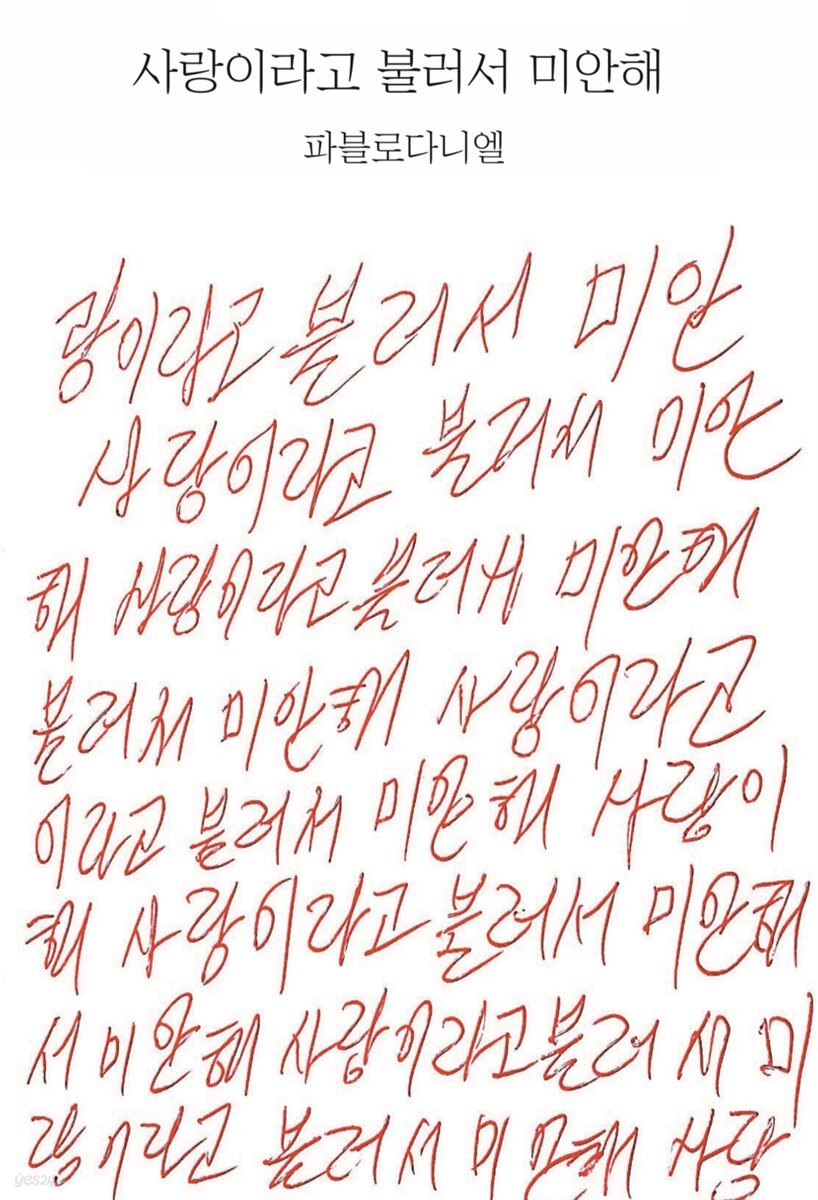 사랑이라고 불러서 미안해
파블로다니엘
랑이라고 불러서 미안
사랑이라고 불러서 미안
해 사랑이라고 불러서 미안해
불러서 미안해 사랑이라고
이라고 불러서 미안해 사랑이
해 사랑이라고 불러서 미안해
서 미안해 사랑이라고 불러서 미
랑이라고 불러서 미안해 사랑
yes24